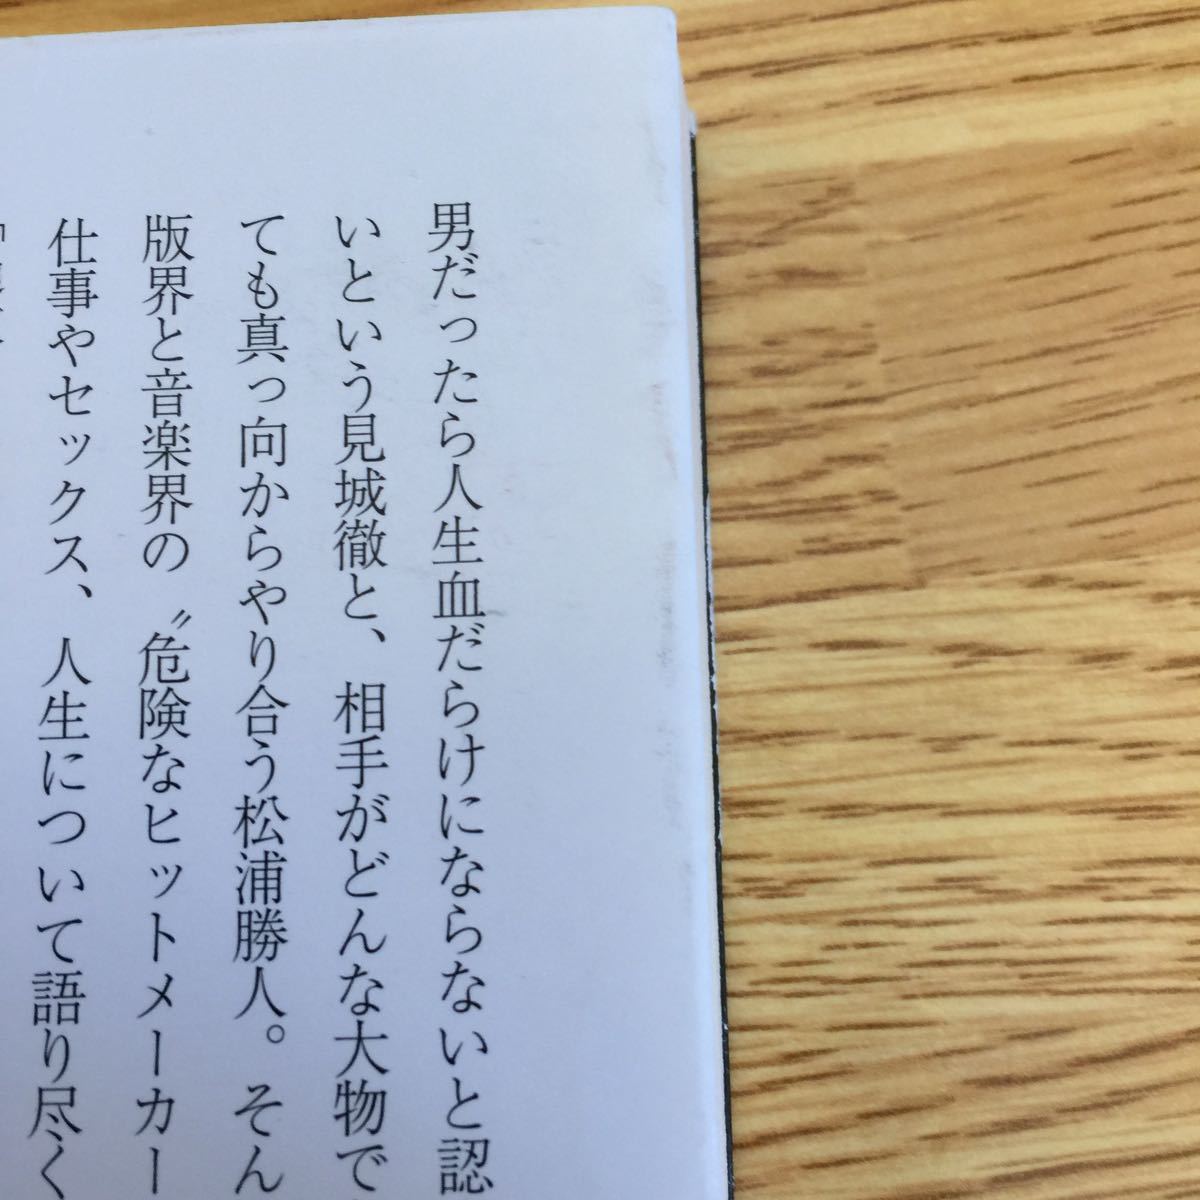 男だったら人生血だらけにならないと認
いという見城徹と、相手がどんな大物で
ても真っ向からやり合う松浦勝人。そん
版界と音楽界の〝危険なヒットメーカー
仕事やセックス、人生について語り尽く